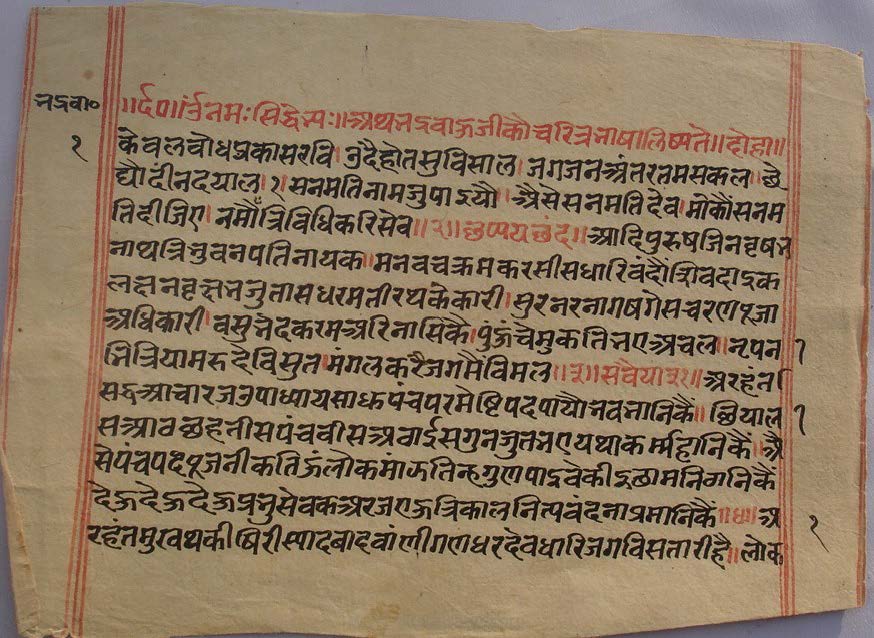 भद्रबा०
१
॥र्द०॥ र्उनमःसिद्धेभ्यः॥अथभद्रबाऊजीकौचरित्रभाषालिष्यते॥दोहा॥
केवलबोधप्रकासरवि।उदैहोतसुविसाल।जगजनअंतरतमसकल॥छे
द्यौदींनदयाल।१।सनमतिनामजुपाइयौ।अैसेसनमतिदेव।मोकौंसनम
तिदीजिए।नमौंत्रिविधिकरिसेव॥२॥छप्पयछंद॥आदिपुरुषजिनवृषभ
नाथत्रिभुवनपतिनायक॥मनबचक्रमकरसीसधारिवंदौंशिवदाइक
लक्षनवृक्षभजुतासधरमतीरथकेकारी।सुरनरनागषगेसचरणपूजा
अधिकारी।वसुभेदकरमअरिनासिकै।पुंऊचेमुकतिभएअचल॥नृपन
भित्रियामरुदेविसुत।मंगलकरैजगमैंविमल॥३॥सवैया३१॥अरहंत।
सद्धआचारजउपाध्यायसाधपंचपरमेष्टिपदपायौभवभानिकैं॥छियाल
सआठछहतीसपंचवीसअठाईसगुनजुतभएयथाकर्महानिकैं॥अै
सेपंचपदपूजनीकतिऊंलोकमांऊतिन्हगुणपाइवेकीइछामनिगनिकैं
देऊदेऊदेऊप्रभुसेवकअरजएऊत्रिकालनित्यवंदनाप्रमानिकैं॥४॥अ
रहंतमुखथकीषिरीस्यादबादवांणीगणधरदेवधारिजगविसतारीहै॥लोक
१